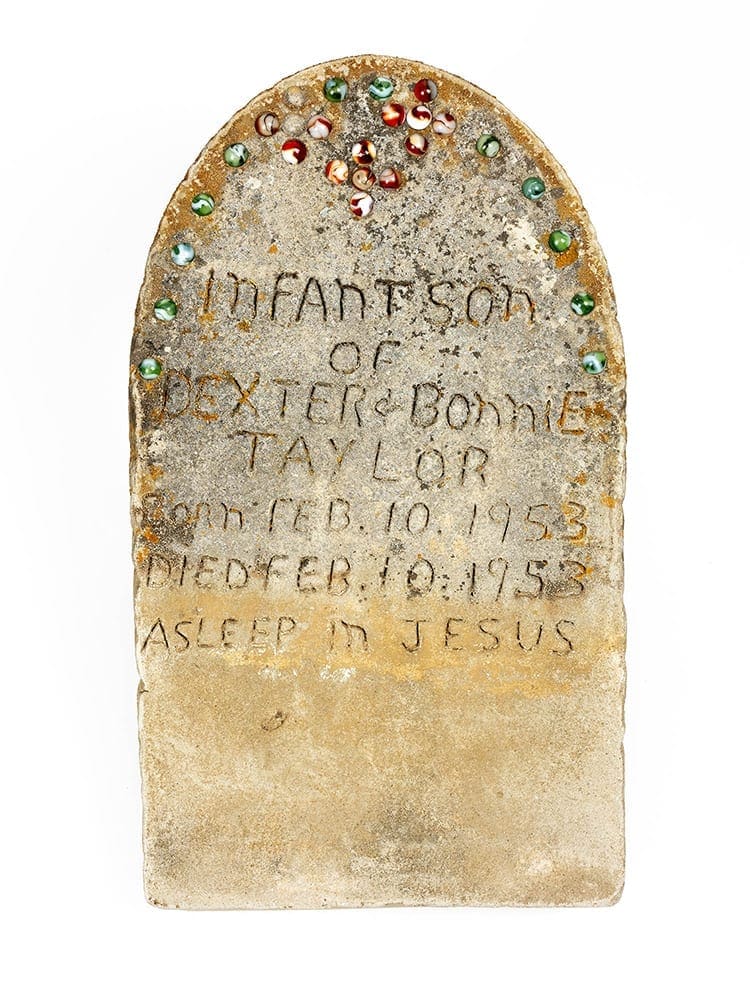 InFAnT SOn
OF
DEXTER & BOnniE
TAYLOR
BORn FEB. 10. 1953
DIED FEB. 10. 1953
ASLEEP In JESUS